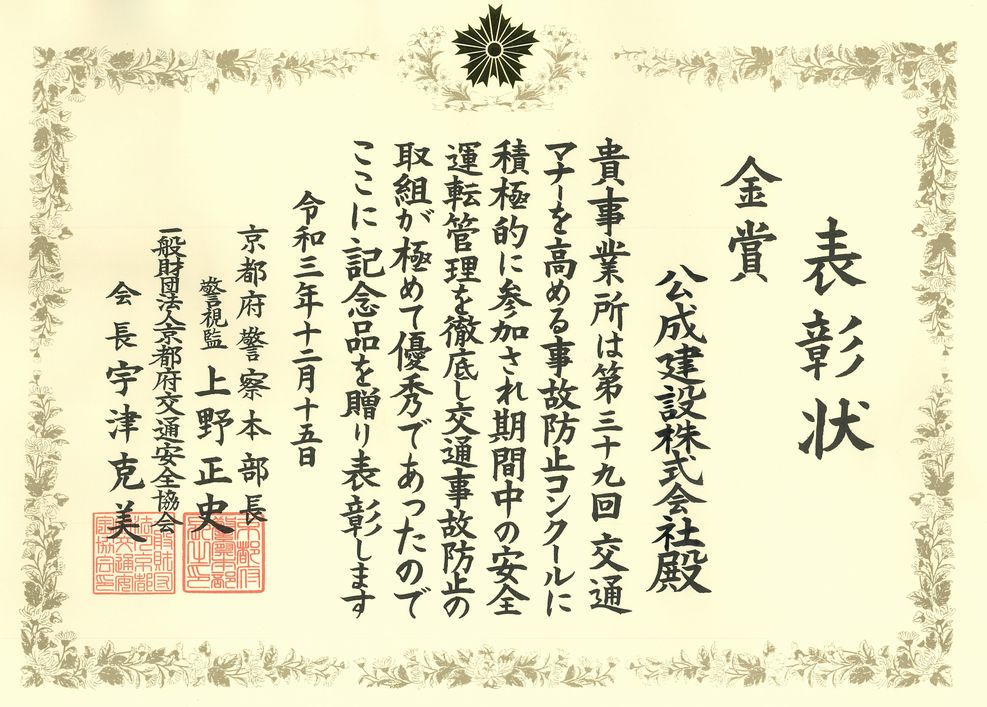 表彰状
金賞
公成建設株式会社殿
貴事業所は第三十九回交通
マナーを高める事故防止コンクールに
積極的に参加され期間中の安全
運転管理を徹底し交通事故防止の
取組が極めて優秀であったので
ここに記念品を贈り表彰します
令和三年十二月十五日
京都府警察本部長
警視監 上野正史
一般財団法人京都府交通安全協会
会長宇津克美